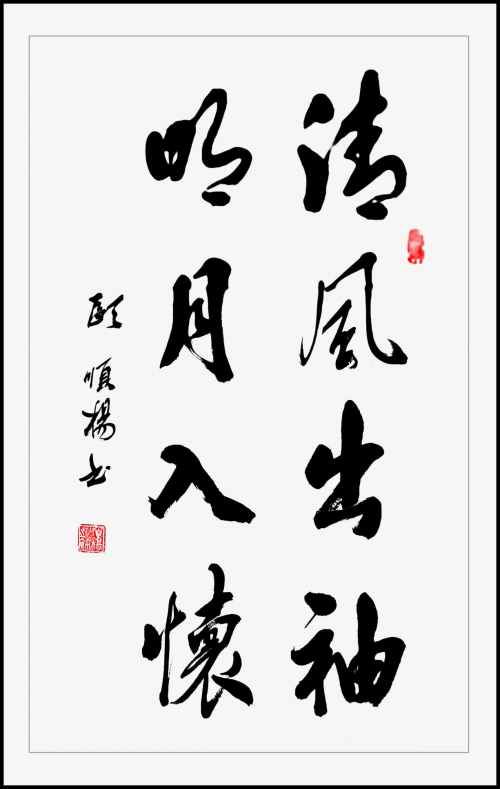 清風出袖
明月入懷
顧順楊书